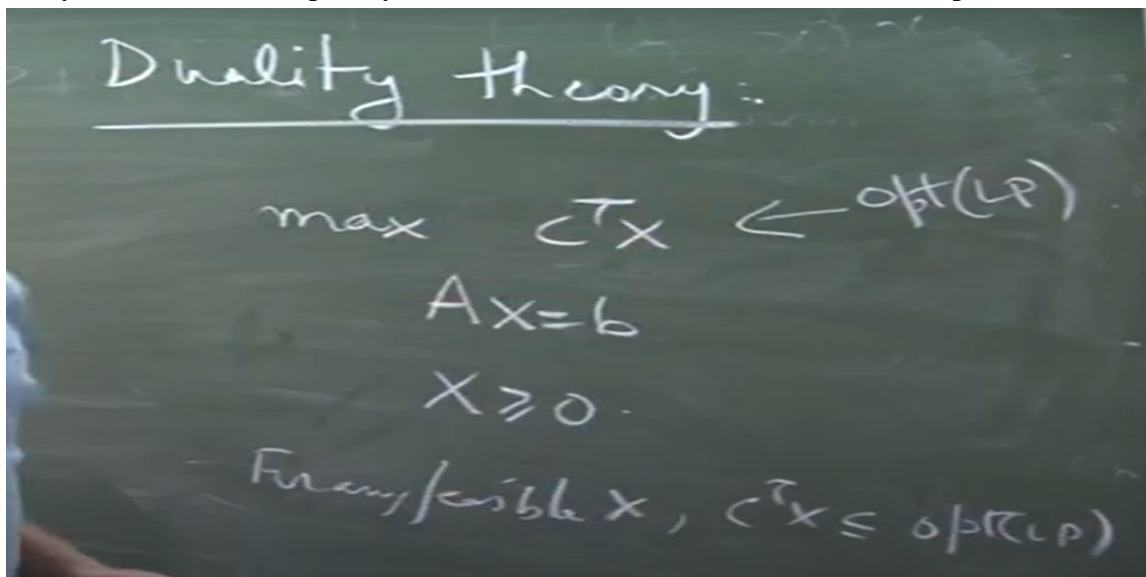 Duality theory:
max cᵀx ← opt(LP)
Ax=b
x ≥ 0.
For any feasible x, cᵀx ≤ opt(LP)